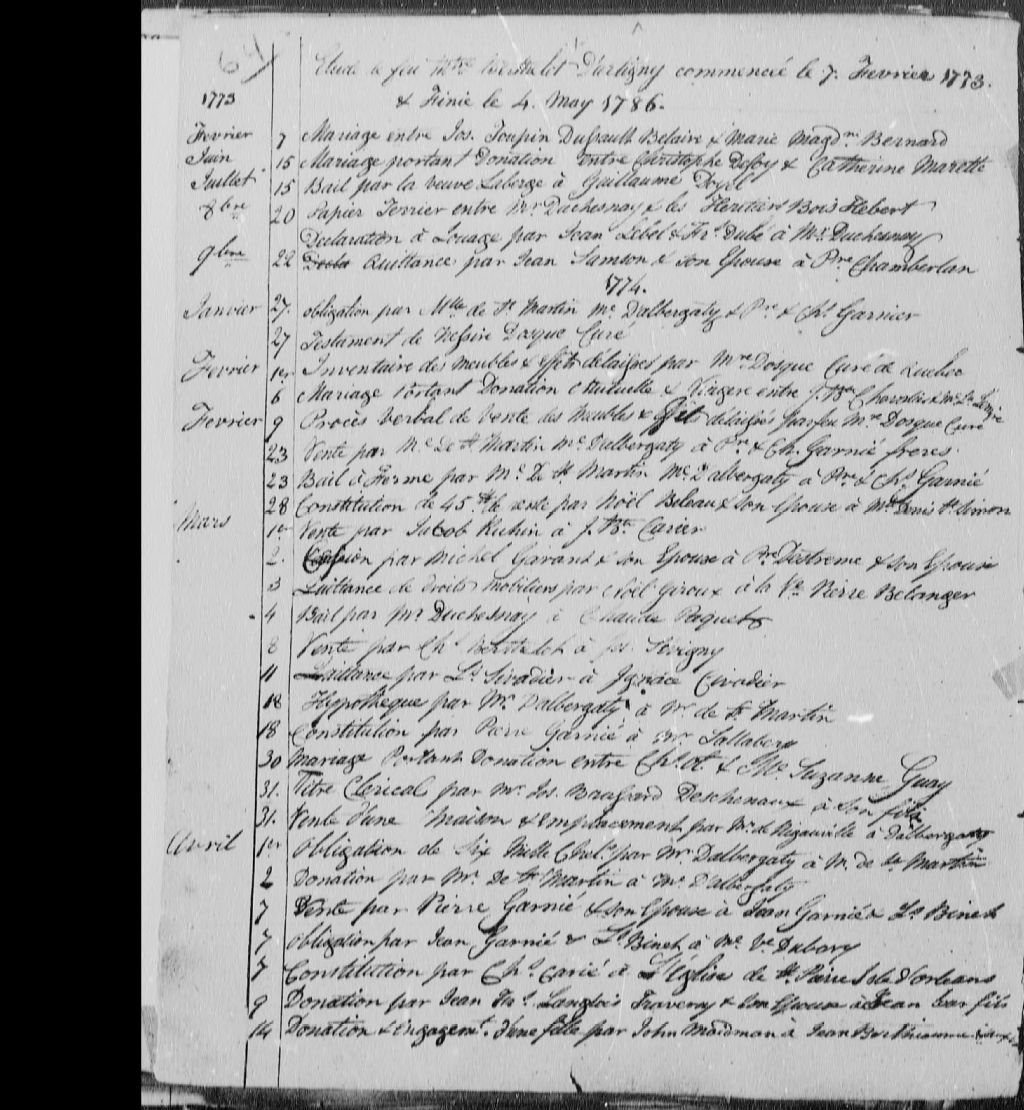 64
Etude de feu Mtre Berthelot Dartigny commencé le 7. Fevrier 1773.
1773 & Finie le 4. May 1786.
Fevrier 7 Mariage entre Jos. Toupin Dusault Belaire & Marie Magdne Bernard
Juin 15 Mariage portant Donation entre Christophe Defoy & Catherine Marette
Juillet 15 Bail par la veuve Laberge à Guillaume
8bre 20 Papier Terrier entre Mr Duchesnay & les Heritiers Bois Hebert
Declaration à Louage par Jean Lebel & Frs Dubé à Mr Duchesnay
9bre 22 Quittance par Jean Samson & son Epouse à Pre Chamberlan
1774.
Janvier 27. obligation par Mlle de St Martin Mc Dalbergaty & Pre & Chs Garnier
27 Testament de Messire Dosque Curé
Fevrier 1er Inventaire des meubles & effets delaissés par Mre Dosque Curé de Quebec
6 Mariage Portant Donation Mutuelle & Viagere entre J. Bte
Fevrier 9 Procès Verbal de Vente des Meubles & effets delaissés par feu Mre Dosque Curé
23 Vente par Mc De St Martin Mc Dalbergaty à Pre & Ch. Garnié freres
23 Bail à Ferme par Mc De St Martin Mc Dalbergaty à Pre & Chs Garnié
28 Constitution de 45 de rente par Noël Beleau & son Epouse à Mr Denis St Simon
Mars 1er Vente par Jacob à J. Bte Carier
2. Cession par Michel Girard & son Epouse à Pre Destreme & son Epouse
3 Quittance de droits mobiliers par Noël Giroux à la Ve Pierre Belanger
4 Bail par Mr Duchesnay à Claude Paquet
8 Vente par Chs Berthelot à Jos. Sevigny
11 Quittance par Ls Sivadier à Ignace Civadier
18 Hypotheque par Mr Dalbergaty à Mr de St Martin
18 Constitution par Pierre Garnié à Mr Sallaberry
30 Mariage Portant Donation entre & Suzanne Guay
31. Titre Clerical par Mr Jos. Brassard Deschenaux à Son fils
31. Vente d'une Maison & Emplacement par Mr de Rigauville à Dalbergaty
Avril 1er Obligation de Six Mille Chel. par Mr Dalbergaty à Mr de St Martin
2 Donation par Mr De St Martin à Mc Dalbergaty
7 Vente par Pierre Garnié & son Epouse à Jean Garnié & Ls Binet
7 obligation par Jean Garnié & Ls Binet à Mc Ve Dubory
7 Constitution par Chs Carié à L'Eglise de St Pierre Isle d'orleans
9 Donation par Jean Frs Langlois Traversy & Son Epouse à Jean leur fils
14 Donation & Engagemt d'une fille par John Maidman à Jean Berthiaume